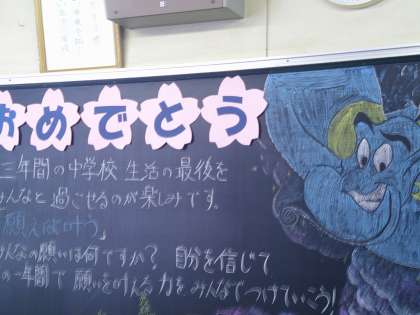 おめでとう
三年間の中学校生活の最後を
みんなと過ごせるのが楽しみです。
「願えば叶う」
みんなの願いは何ですか？ 自分を信じて
の一年間で願いを叶える力をみんなでつけていこう！